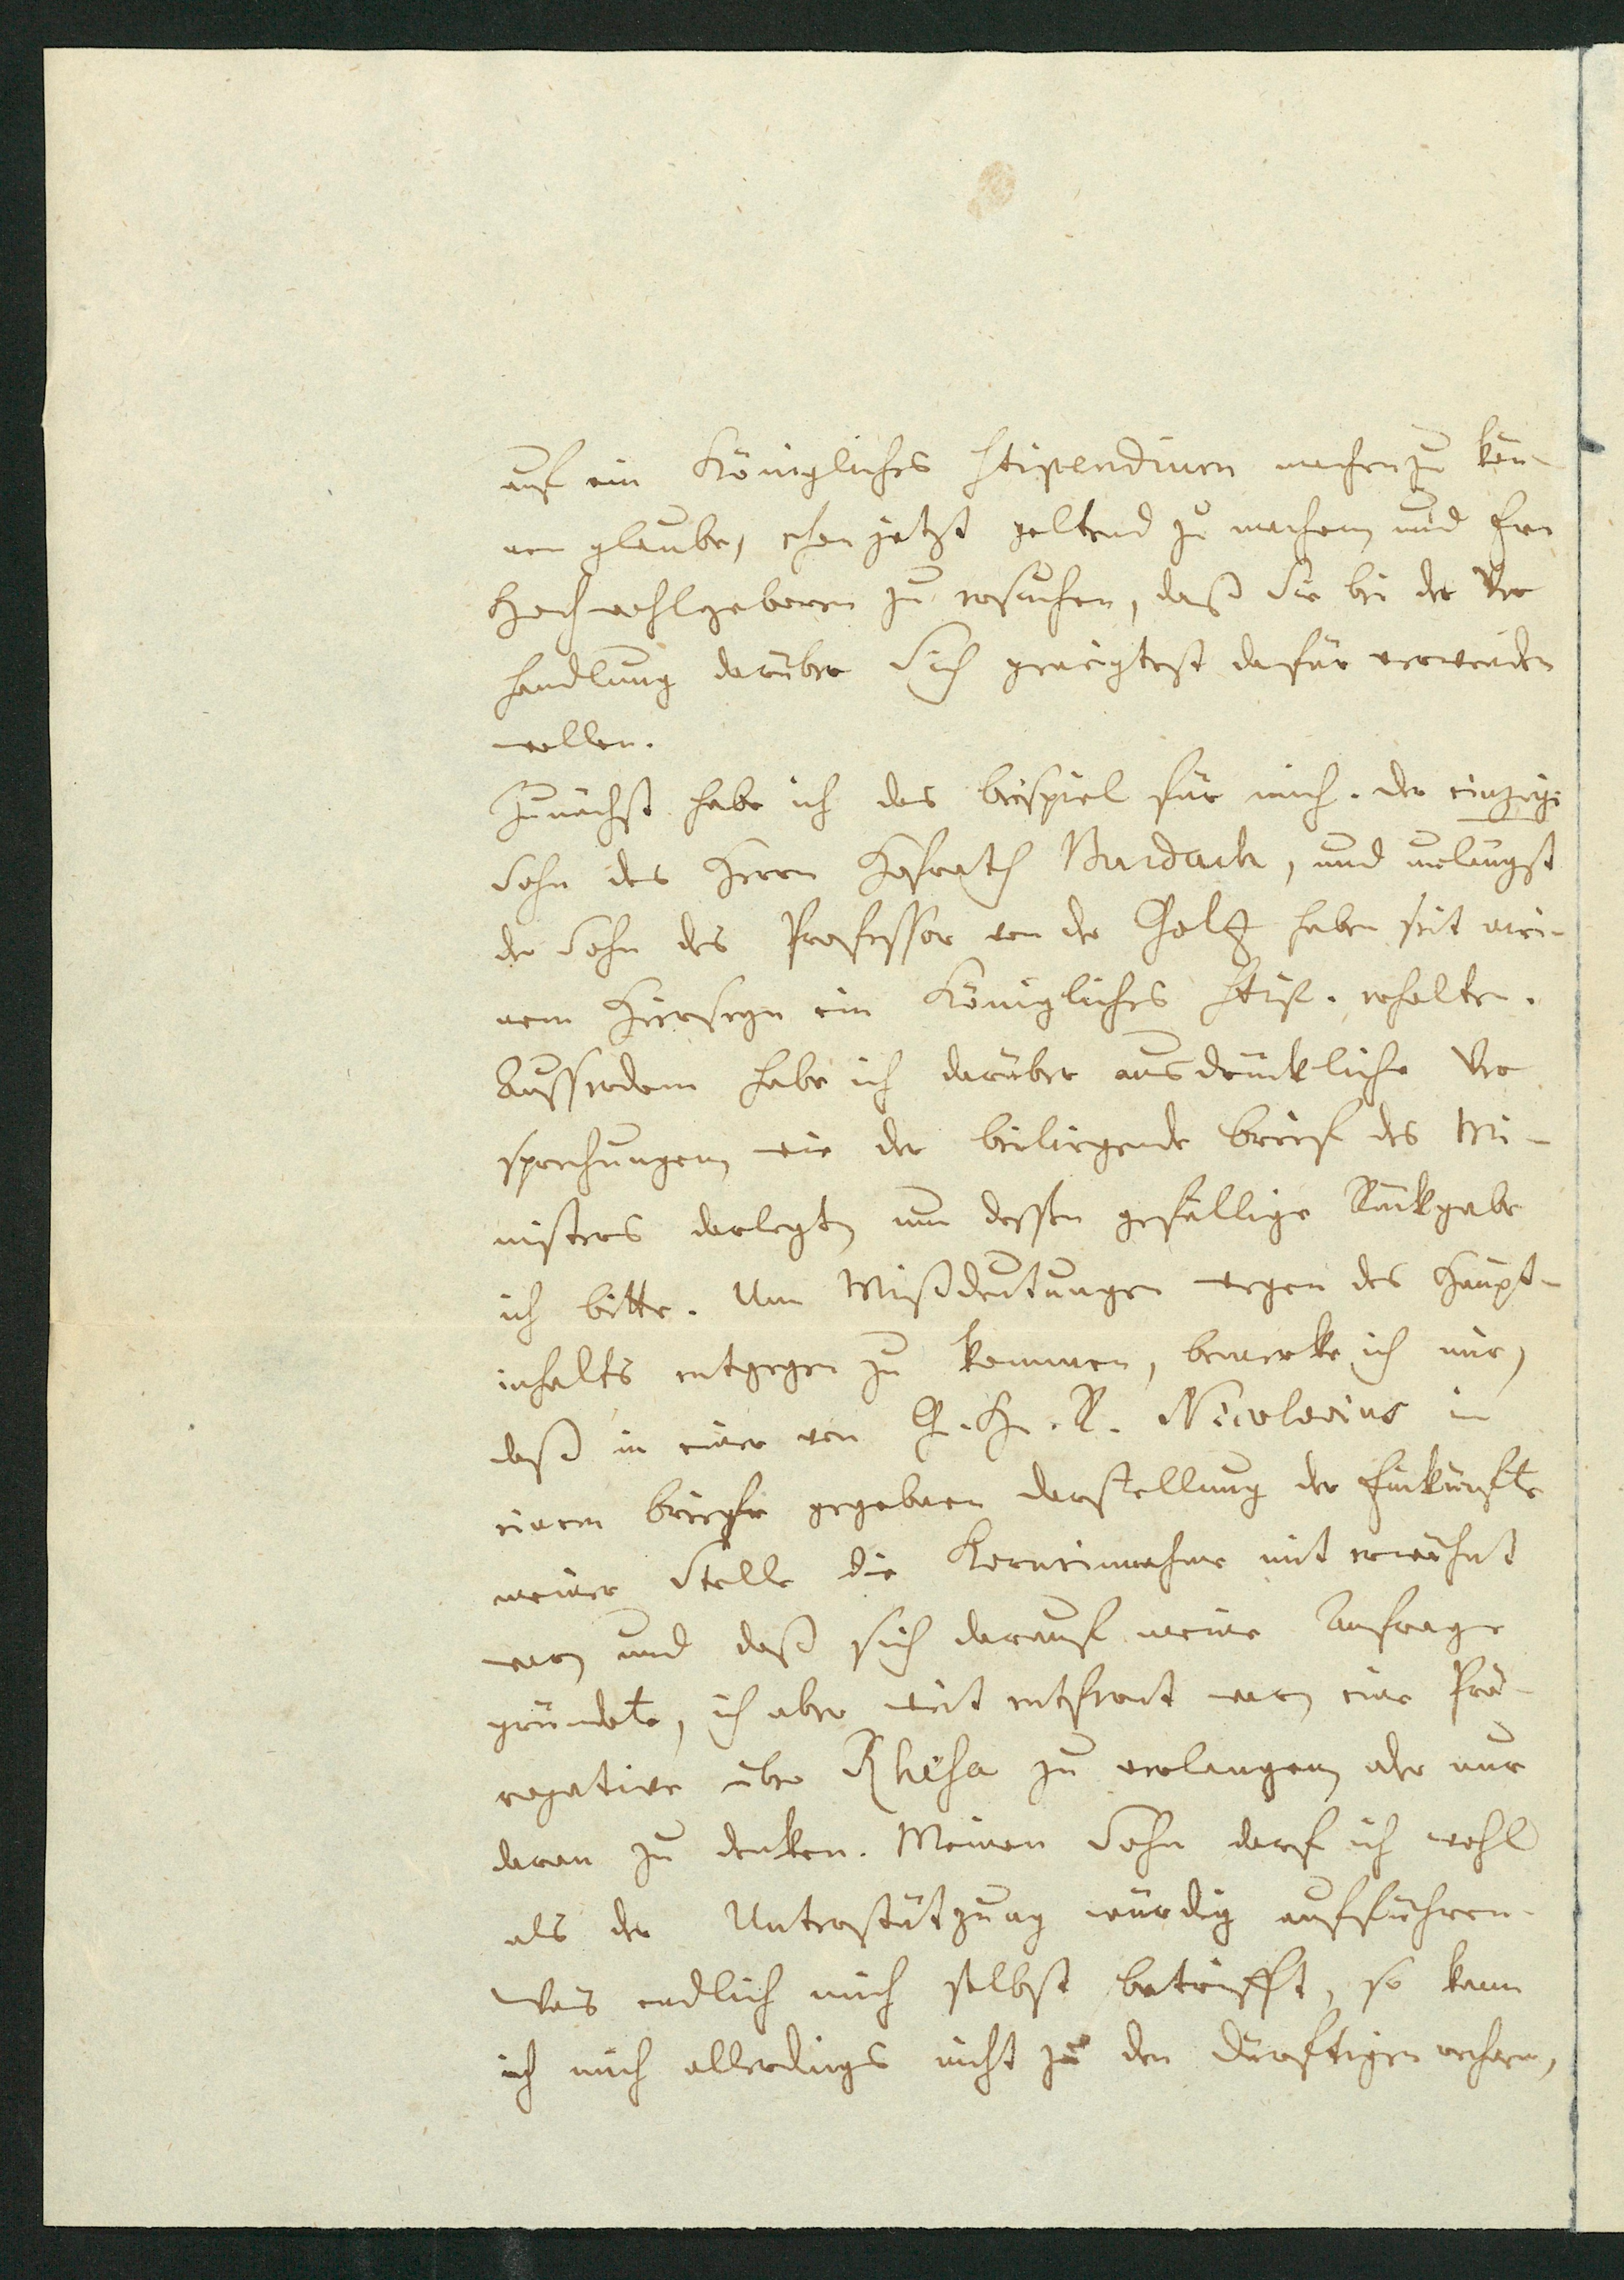 auf ein Königliches Stipendium machen zu kön-
nen glaube, schon jetzt geltend zu machen und Ew
Hochwohlgeboren zu ersuchen, daß Sie bei der Ver
handlung darüber Sich geneigtest dafür verwenden
wollen.
Zunächst habe ich das Beispiel für mich. Der einzige
Sohn des Herrn Hofrath Burdach, und unlängst
der Sohn des Professor von der Goltz haben seit mei-
nem Hierseyn ein Königliches Stip. erhalten.
Ausserdem habe ich darüber ausdrückliche Ver
sprechungen, wie der beiliegende Brief des Mi-
nisters darlegt, um dessen gefällige Rückgabe
ich bitte. Um Mißdeutungen wegen des Haupt-
inhalts entgegen zu kommen, bemerke ich nur,
daß in einer von G. H. R. Nicolovius in
einem Briefe gegebnen Darstellung der Einkünfte
meiner Stelle die Korneinnahme mit erwähnt
war, und daß sich darauf meine Anfrage
gründete, ich aber weit entfernt war, eine Prä-
rogative über Rhesa zu verlangen, oder nur
daran zu denken. Meinen Sohn darf ich wohl
als der Unterstützung würdig aufführen.
Was endlich mich selbst betrifft, so kann
ich mich allerdings nicht zu den Dürftigen rechnen,